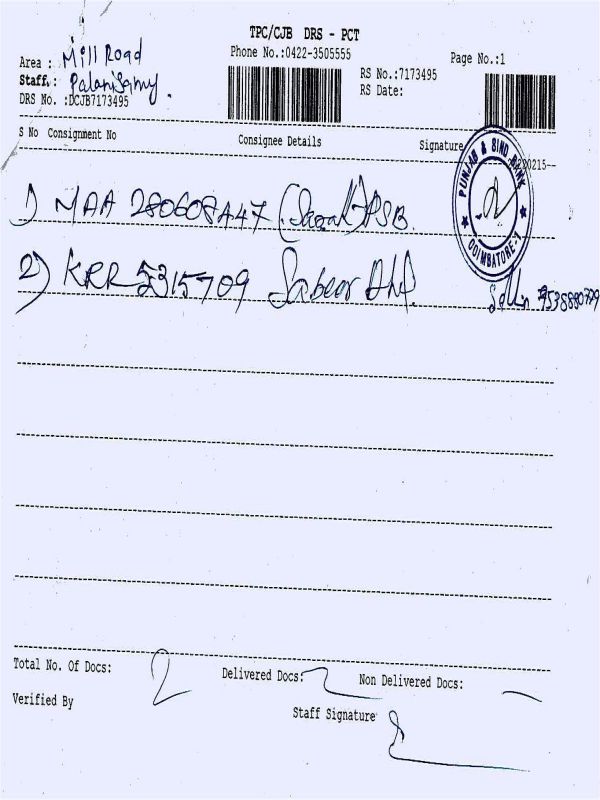 TPC/CJB DRS - PCT
Area : Mill Road
Phone No.:0422-3505555
Page No.:1
Staff.: Palanisamy.
RS No.:7173495
DRS No. :DCJB7173495
RS Date:
S No Consignment No Consignee Details Signature
PUNJAB & SIND BANK
COIMBATORE-1
1) MAA 280608447 PSB.
2) KRR 5315709 Sabeer
Total No. Of Docs: 2 Delivered Docs: 2 Non Delivered Docs: —
Verified By
Staff Signature